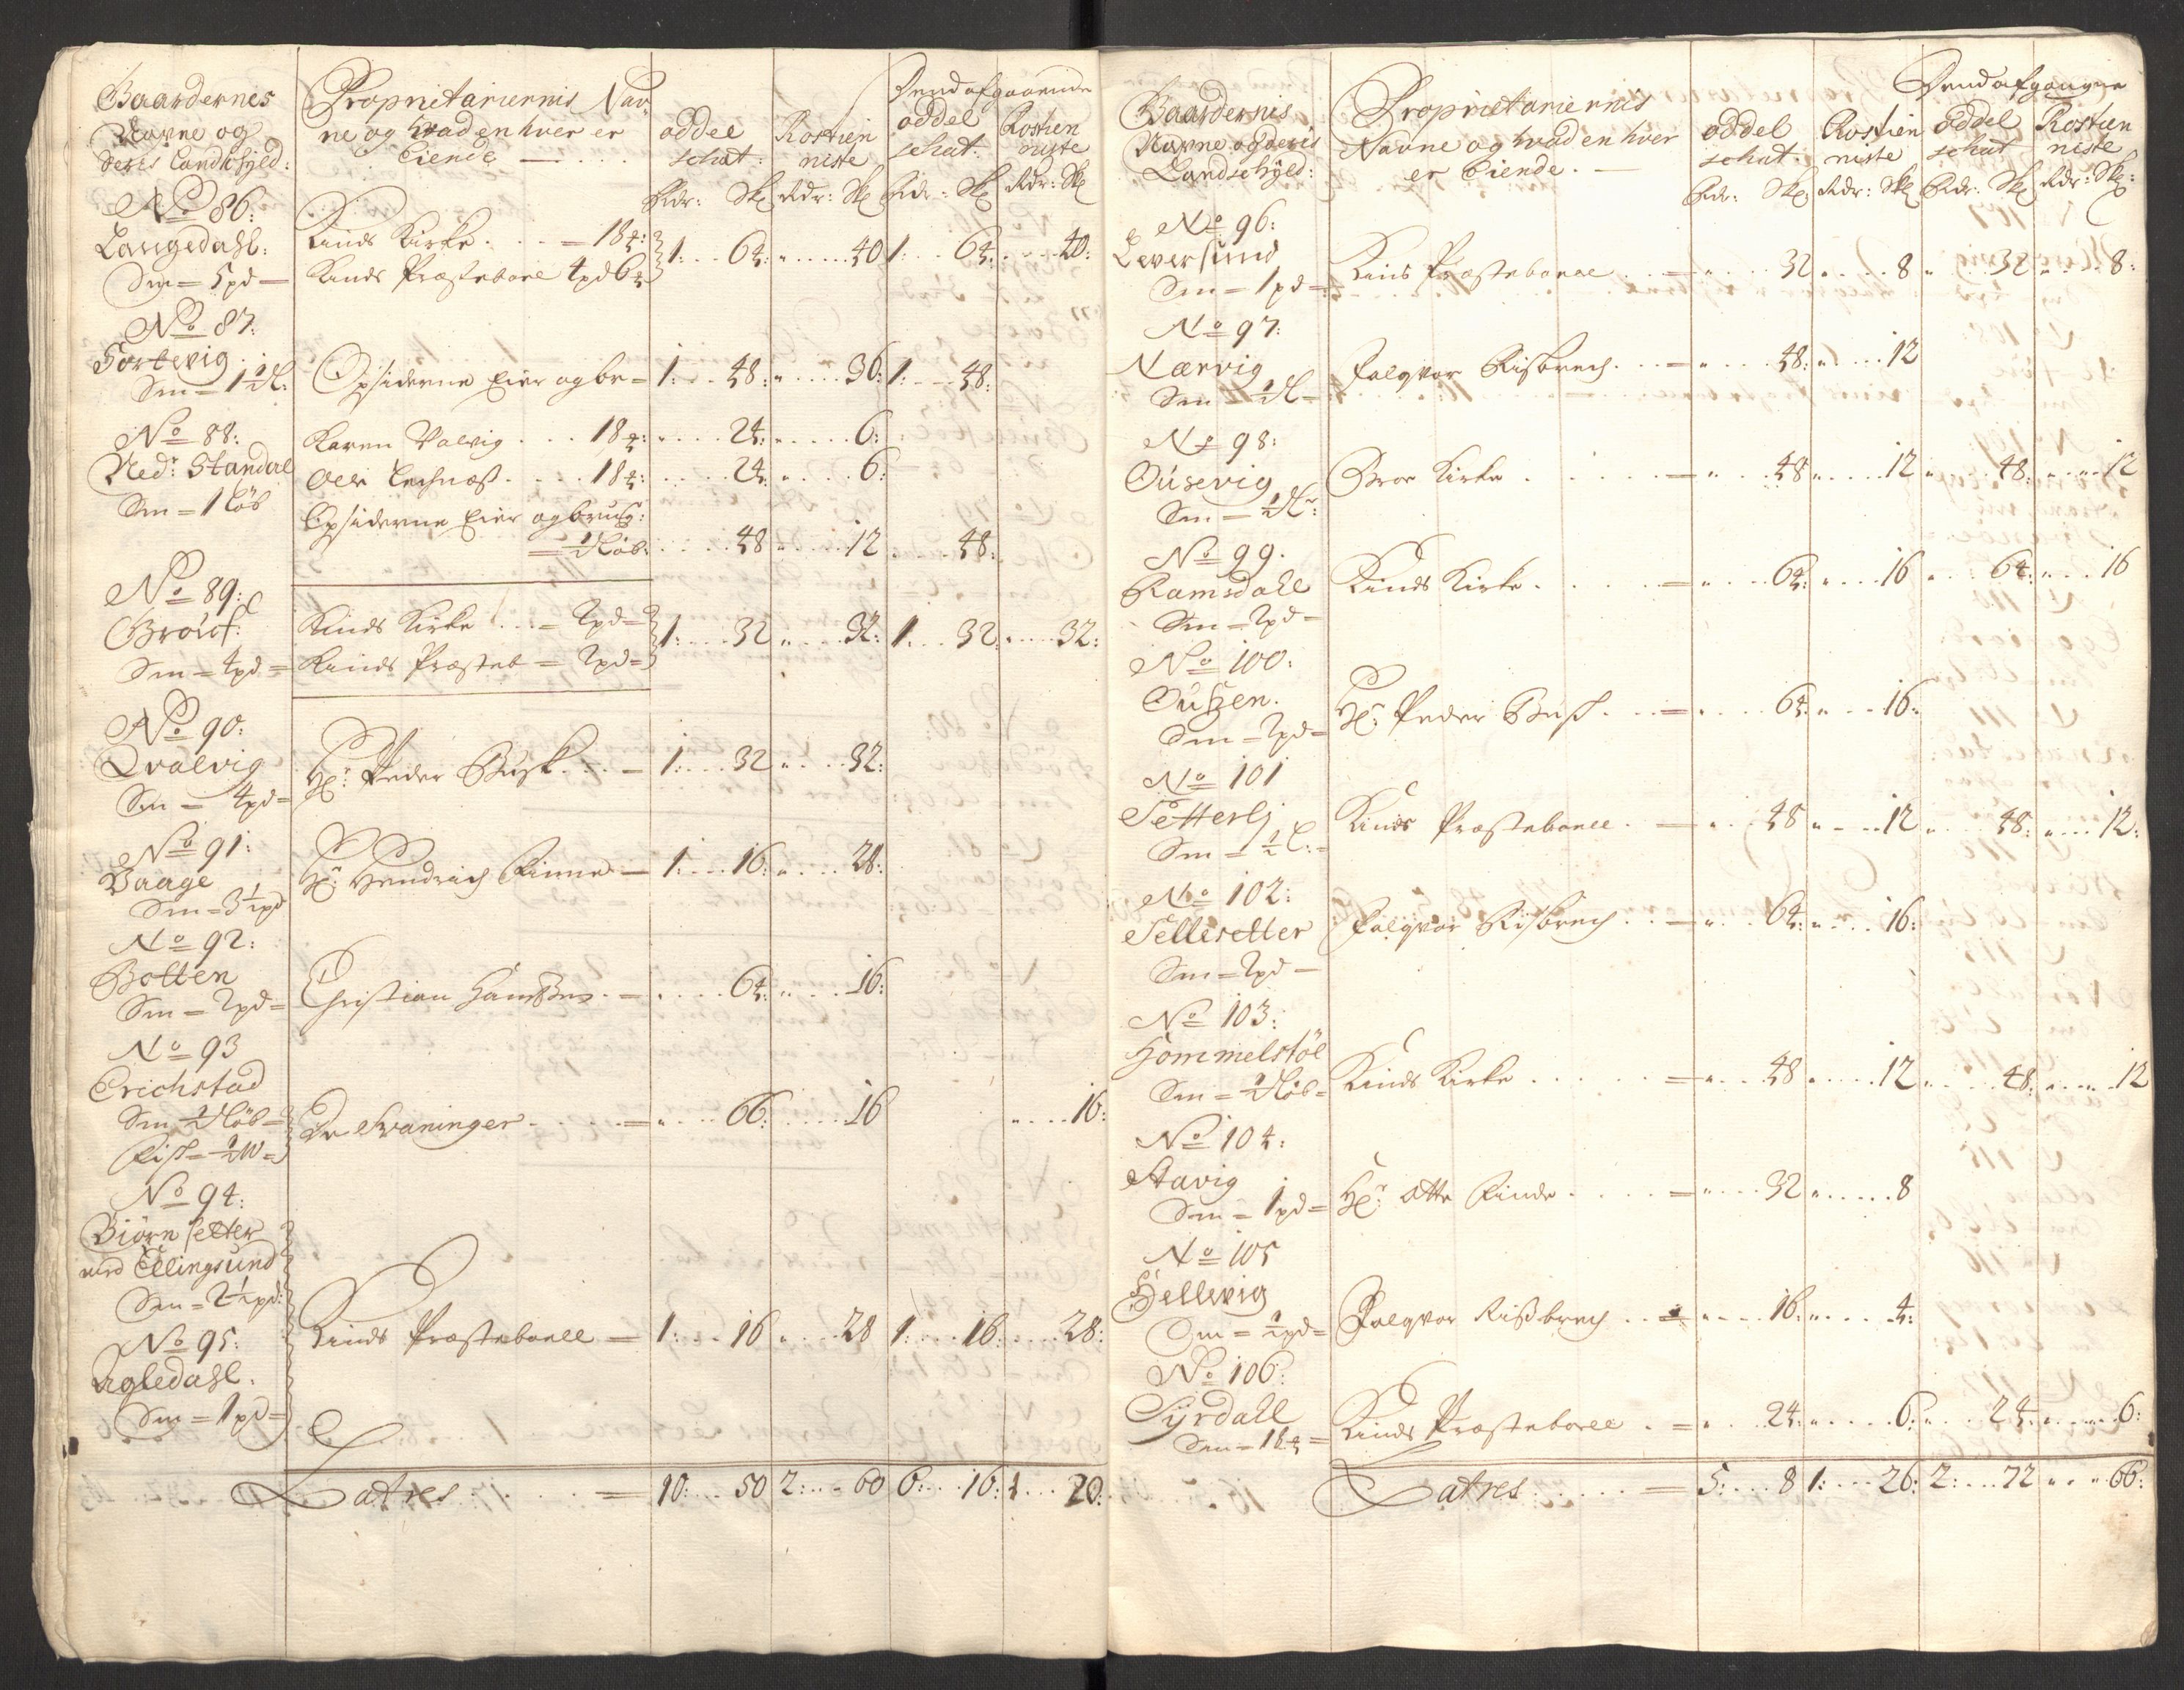 Gaardernes
Nafne og
deris Landschyld:
Proprietariernis Naf-
ne og hvad en hver er
Eiende
oddel
schat:
Rdr: Sk
Rostien
niste
Rdr: Sk
Dend afgaaende
oddel
schat:
Rdr: Sk
Rostien
niste
Rdr: Sk
No 86:
Langedahl:
Sm = 5 pd
Kinds Kirke . . . = 18 m:
Kinds Præstebole 4 pd 6 m
1: . . 64: " . . . . 40 1: . . 64: . . . 40:
No 87:
Hortevig.
Sm = 1 1/2 l:
Opsiderne Eier og br= 1: . . 48: " . . . 36: 1: . . 48:
No 88:
Ned: Standal
Sm = 1 Löb
Karen Valvig . . . 18 m: . . . 24: " . . . 6:
Ole . . . . 18 m: . . . 24: " . . . 6:
Opsiderne Eier og brug:
= 1/2 Löb: . . . 48 " . . . 12 . . . 48:
No 89:
Sm = 4 pd =
Kinds Kirke . . = 2 pd =
Kinds Præsteb = 2 pd =
1: . . . 32 " . . . 32: 1: . . 32: " . . . 32:
No 90:
Qvalvig
Sm = 4 pd =
Hr: Peder Busk . . . = 1: . . . 32 " . . . 32:
No 91:
Vaage
Sm = 3 1/2 pd
Hr: Hendrich Finne = 1: . . . 16: " . . . 28:
No 92:
Botten
Sm = 2 pd =
Christian . = . . . 64: " . . . 16:
No 93
Erichstad
Sm 1/2 Löb =
Fisk = 1/2 W =
De Svaninger . . . = " . . . 66: . . . 16 " . . . 16:
No 94:
Biörnsetter
med Ellingsund
Sm = 2 1/2 pd:
No 95:
Agledahl.
Sm = 1 pd =
Kinds Præstebolle = 1: . . . 16 " . . . 28 1: . . . 16: . . . 28:
Latres . . . . = 10: . . 50 2: . . 60 6: . . 16: 1 . . 20:
Gaardernis
Nafne og deris
Landschyld:
Proprietariernis
Nafne og hvad en hver
er Eiende.
oddel
schat:
Rdr: Sk
Rostien
niste
Rdr: Sk
Dend afgaaende
oddel
schat
Rdr: Sk
Rostien
niste
Rdr: Sk:
No 96:
Leversund
Sm = 1 pd =
Kinds Præstebolle . . = " . . . 32 " . . . 8 " . . . 32 " . . . 8:
No 97:
Nærvig
Sm = 1/2 l =
Falqvor Risbrech . . = " . . . 48: " . . . 12
No 98:
Ousevig
Sm = 1/2 l:
Broe Kirke . . . = " . . . 48 " . . . 12 " . . . 48: " . . . 12
No 99.
Ramsdahl
Sm = 2 pd =
Kinds Kirke . . . = " . . . 64: " . . . 16 " . . . 64: " . . . 16
No 100:
Sm = 2 pd =
Hr: Peder Busk . . = " . . . 64: " . . . 16:
No 101
Setterlj
Sm = 1/2 l: =
Kinds Præstebolle . = " . . . 48 " . . . 12 " . . . 48: " . . . 12:
No 102:
Sellesetter
Sm = 2 pd =
Falqvor Risbrech . . = " . . . 64: " . . . 16:
No 103:
Hommelstöl
Sm = 1/2 Löb =
Kinds Kirke . . . . = " . . . 48 " . . . 12 " . . . 48: " . . . 12
No 104:
Stavig
Sm = 1 pd =
Hr: Otte Finde . . . = " . . . 32 " . . . 8
No 105
Hellevig
Sm = 1/2 pd =
Falqvor Risbrech . . = " . . . 16: " . . . 4:
No 106:
Syrdall
Sm = 18 m =
Kinds Præstebolle . = " . . . 24: " . . . 6: " . . . 24: " . . . 6:
Latres . . . . = 5: . . . 8 1: . . . 26: 2: . . 72 " . . 66: